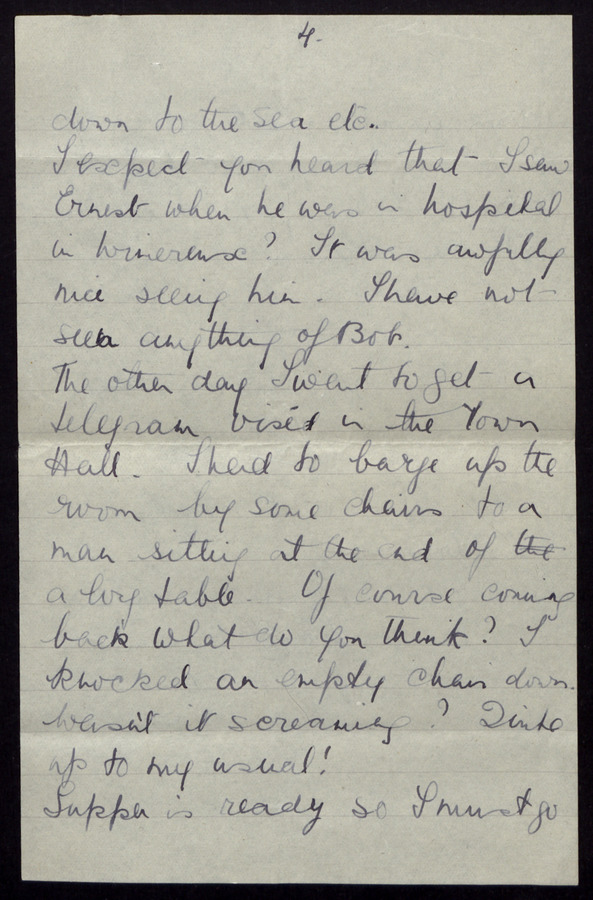 4.
down to the sea etc.
I expect you heard that I saw
Ernest when he was in hospital
in Wimereux? It was awfully
nice seeing him. I have not
seen anything of Bob.
The other day I went to get a
telegram viséd in the Town
Hall. I had to barge up the
room by some chairs to a
man sitting at the end of the
a big table. Of course coming
back what do you think? I
knocked an empty chair down.
Wasn't it screaming? Quite
up to my usual!
Supper is ready so I must go